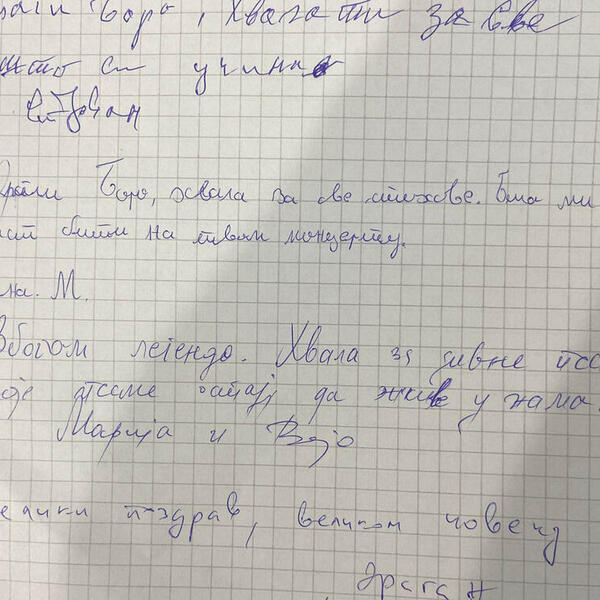 Боро, Хвала ти за све
што си учинио
Јован
Драги Боро, хвала за све стихове. Био ми
част бити на твом концерту.
на. М.
Збогом легендо. Хвала за дивне
песме остају да живе у нама.
Марија и Војо
Велики поздрав, великом човеку
Драган